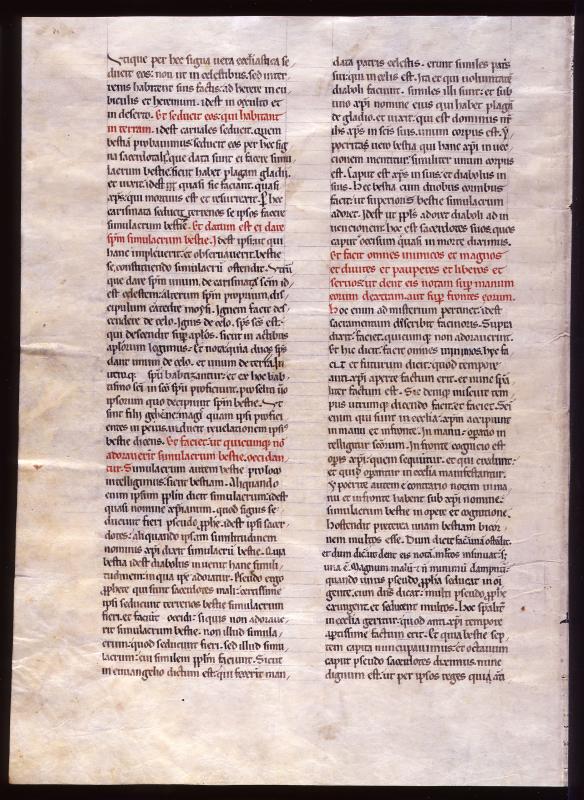 Utique per hec signa uera eccl̄iastica se
ducit eos: non ut in celestibus. sed inter
renis habitent suis factis: ad herere in cu
biculis et heremum. idest in occulto et
in deserto. Et seducit eos: qui habitant
in terram. idest carnales seducit. quem
bestiā probauimus. seducit eos per hec sig
na sacerdotalia: que data sunt ei facere simu
lacrum bestie. sicut habet plagam gladii.
et uixit. idest sic faciant. quasi
xp̄s. qui mortuus est et resurrexit. hec
seducit terrenos se ipsos facere
simulacrum bestie. Et datum est ei dare
sp̄m simulacrum bestie. idest ipsi: ut qui
hanc impleuerit. et obseruauerit. bestie
se. constituendo simulacrū ostendit.
que dare sp̄m unum. de carismata s̄cm id
est celestem: alterum sp̄m proprium. dis
cipulum caredre moysi. Ignem facit des
cendere de celo. Ignis de celo. sp̄s s̄cs est.
qui descendit sup̄ ap̄los. sicut in actibus
ap̄lorum legimus. Et nota quia duos sp̄s
dant unum de celo. et unum de terra. In
utroq; sp̄ū babtizantur. et ex hoc bab
tismo sci in s̄co sp̄ū proficiunt. proseliti uō
ipsorum quo decipiunt sp̄m bestie.
sint filii gehenne: magi quam ipsi profici
entes in peius. inducit reuelationem ipsi
bestie dicens. Et faciet: ut quicumq; nō
adorauerit simulacrum bestie. occidan
tur. Simulacrum autem bestie pro loco
intelligimus. sicut bestiam. Aliquando
enim ipsum pp̄lm dicit simulacrum. idest
quasi nomine xp̄ianum. quod signis se
ducunt fieri pseudo p̄phe. idest ipsi sacer
dotes. aliquando ipsam similitudinem
nominis xp̄i dixit simulacrū bestie. sua
bestia idest diabolus inuenit hanc simili
tudinem: in qua ipse adoratur. Pseudo ergo
p̄phete qui sunt sacerdotes mali: certissime
ipsi seducunt terrenos bestie simulacrum
fieri. et faciūt occidi: si quis non adoraue
rit simulacrum bestie. non illud simula
crum. quod seducunt fieri. sed illud simu
lacrum: cui similem pp̄lm faciunt. Sicut
in euuangelio dictum est. qui fecerit man
data patris celestis. erunt similes patris
sui: qui in celis est. Ita et qui uoluntatē
diaboli faciunt. similes illi sunt: et sub
uno xp̄i nomine eius qui habet plagā
de gladio. et uixit. qui est dominus n̄r
ih̄s xp̄s in sc̄is suis. unum corpus est.
pocritas uero bestia qui hanc xp̄i in uo
cionem mentitur. similiter unum corpus
est. Caput est xp̄s in suis: et diabolus in
suis. Hec bestia cum duobus cornibus
facit: ut superioris bestie simulacrum
adoret. Idest ut pp̄ls adoret diaboli ad in
uencionem. hec est sacerdotes suos. ques
caput occisum quasi in morte diximus.
Et facit omnes inimicos et magnos
et diuites et pauperes et liberos et
seruos: ut det eis notam sup̄ manum
eorum dextram. aut sup̄ frontes eorum.
Hoc enim ad misterium pertinet. idest
sacramentum describit facinoris. Supra
dixit. faciet. quicumq; non adorauerint.
Et hic dicit. facit omnes inimicos. hec fa
cit et futurum dicit: quod tempore
anti xp̄i aperte factum erit. et nunc sp̄ā
liter factum est. Sic deniq; miscuit tem
pus utrumq; dicendo facit. et faciet. Sci
enti qui sunt in ecclīa. xp̄m accipiunt
in manu et in fronte. In manu. operatio in
telligitur s̄corum. In fronte cognicio est
operis xp̄i. quem sequuntur. et qui credunt.
et quid operantur in ecclīa manifestantur.
Ypocrite autem e contrario notam in ma
nu et in fronte habent sub xp̄i nomine.
simulacrum bestie in opere et cogitatione.
Hostendit preterea unam bestiam bicor
nem multos esse. Dum dicit faciēma ostendit.
et dum dic̄ ut dent eis notā. multos insinuat. s;
una ē. Magnum malū. et minimū dampnū:
quando unus pseudo p̄pha seducat in oi
gente. cum dn̄s dicat: multi pseudo p̄phe
exurgent. et seducent multos. hoc sp̄alit̄
in ecclīa geritur: quod anti xp̄i tempore
apertissime factum erit. Et quia bestie sep
tem capita nuncupauimus. et octauum
caput pseudo sacerdotes diximus. nunc
dignum est. ut per ipsos reges quia an̄